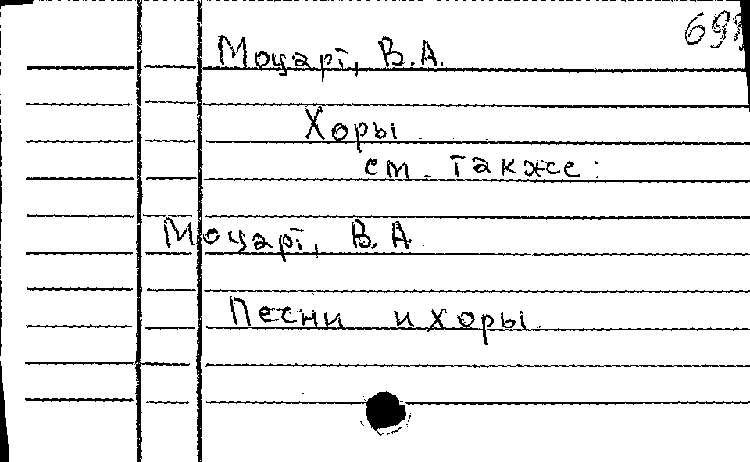 Моцарт, В.А.
Хоры
см. также:
Моцарт, В.А.
Песни и хоры